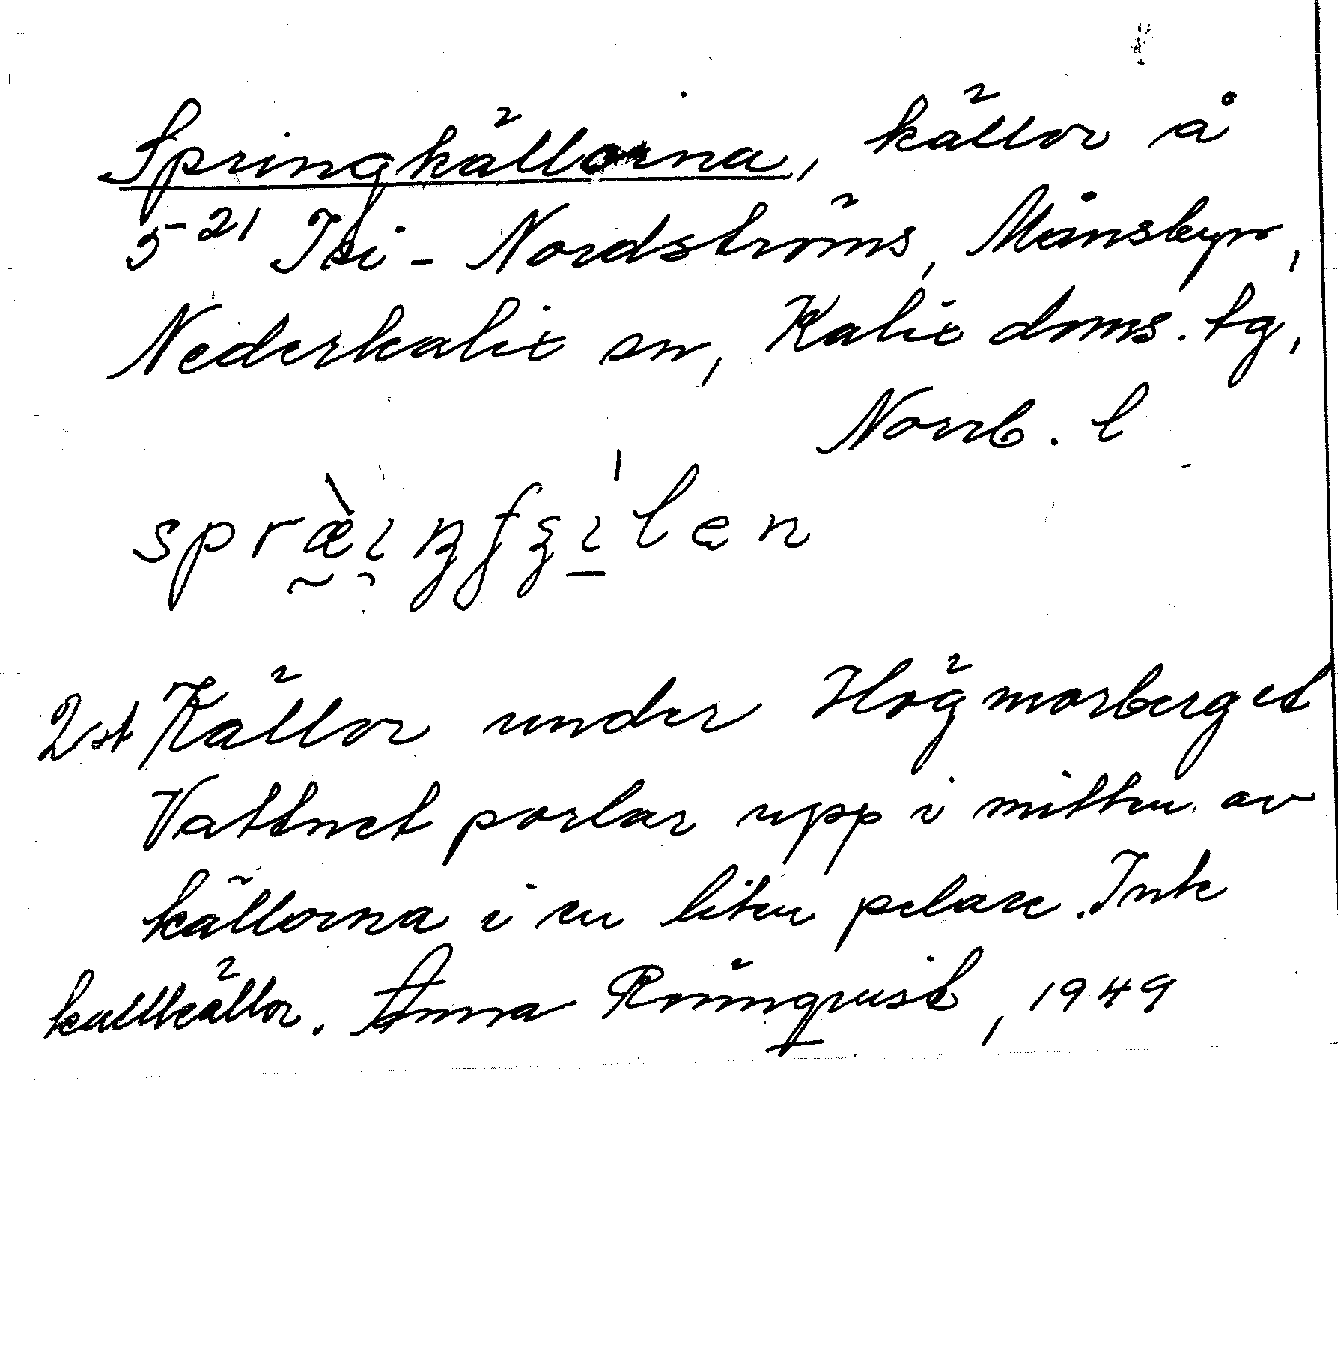 Springkällorna, källor å
5²¹ Isi - Nordströms, Månsbyn,
Nederkalix sn, Kalix doms. tg,
Norrb. l
spræıŋfʒılen
2 st Källor under Högmorberget
Vattnet porlar upp i mitten av
källorna i en liten pelare. Inte
kallkällor. Anna Rönnqvist, 1949